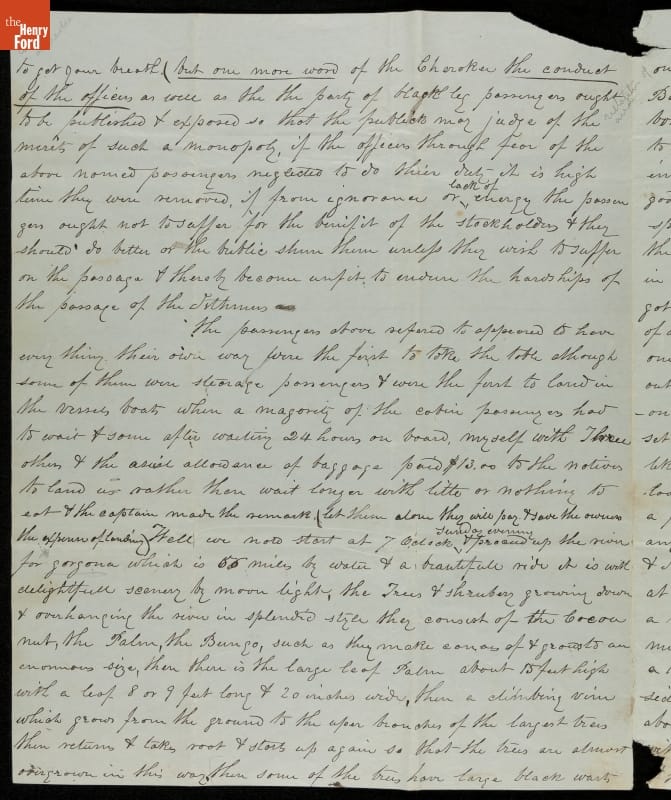 the
Henry
Ford
to get your breath (but one more word of the Cherokee the conduct
of the officers as well as the the party of black leg passengers ought
to be published & exposed so that the publick may judge of the
merits of such a monopoly, if the officers through fear of the
above named passengers neglected to do thier duty it is high
time they were removed, if from ignorance or lack of energy the passen
gers ought not to suffer for the binifit of the stockholders & they
should do better or the public shun them unless they wish to suffer
on the passage & thereby become unfit, to endure the hardships of
the passage of the Isthmus
The passengers above refered to appeared to have
every thing their own way were the first to take the table although
some of them were stearage passengers & were the first to land in
the vessels boats when a magority of the cabin passengers had
to wait & some after waiting 24 hours on board, myself with Three
others & the allowdence of baggage paid $13.00 to the natives
to land us rather than wait longer with litte or nothing to
eat & the captain made the remark (let them alone they will pay & save the owners
the expense of landing) Well we now start at 7 Oclock sunday evening & proceed up the river
for gorgona which is 55 miles by water & a beautifull ride it is with
delightfull scenery by moon light, the Trees & shrubery growing down
& overhanging the river in splendid style they consist of the Cocoa
nut, the Palm, the Bungo, such as they make canoes of & grows to an
enormous size, then there is the large leaf Palm about 15 feet high
with a leaf 8 or 9 feet long & 20 inches wide, then a climbing vine
which grows from the ground to the uper branches of the largest trees
then returns & takes root & starts up again so that the trees are almost
overgrown in this way, then some of the trees have large black warts